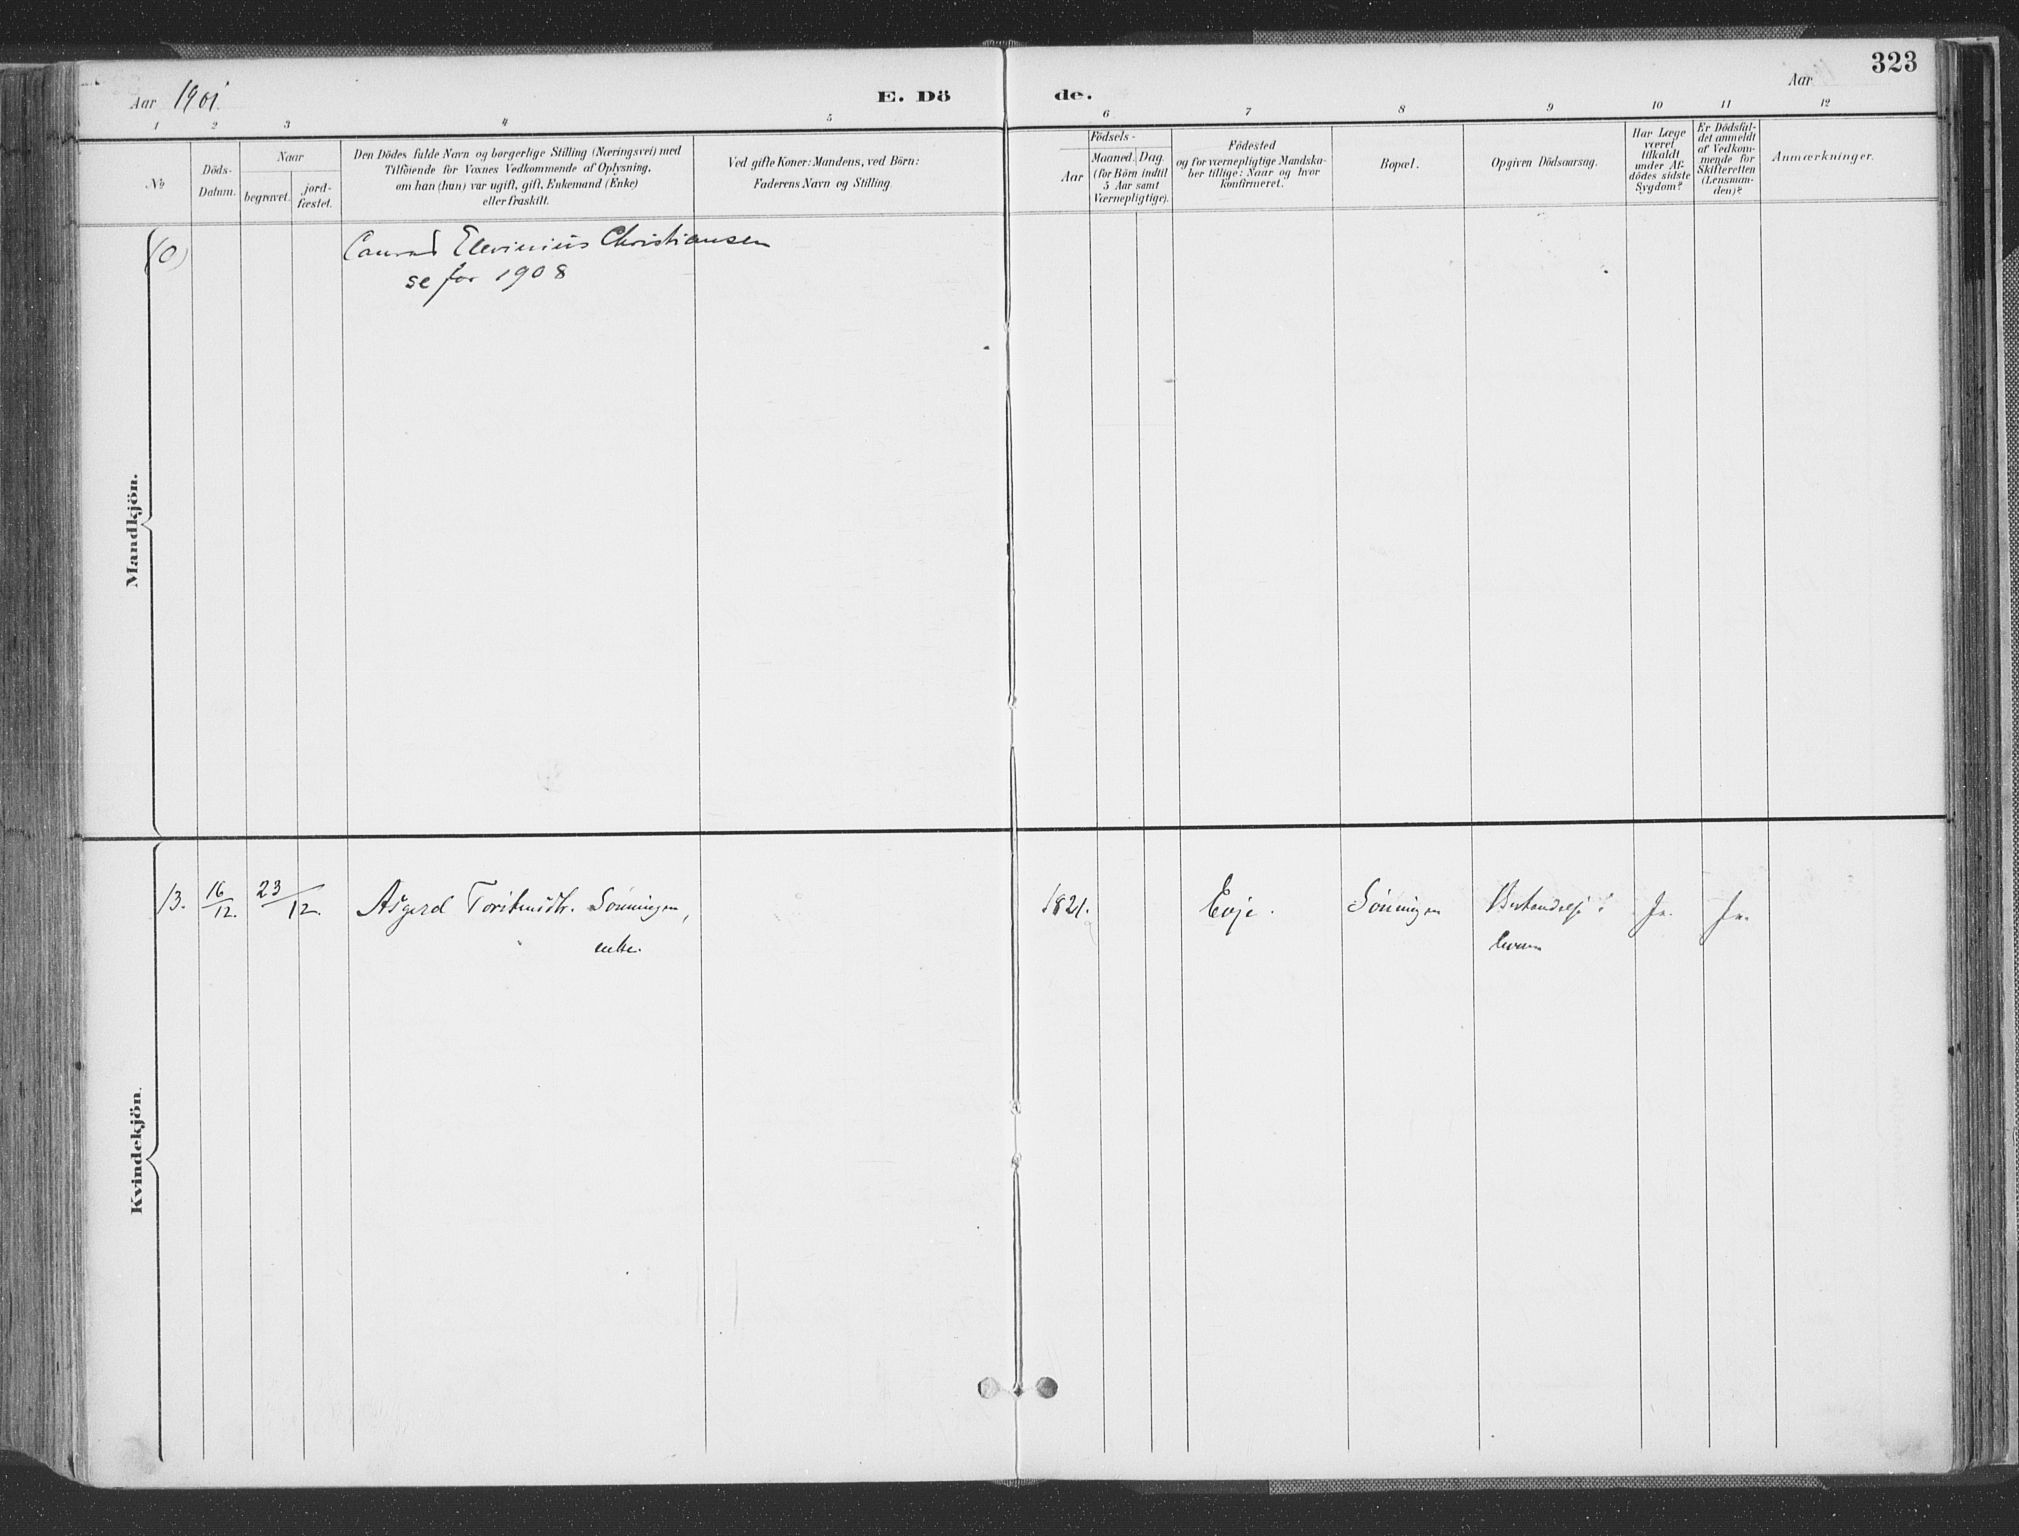 323
Aar 1901. E. Dö de. Aar
1 2 3 4 5 6 7 8 9 10 11 12
No
Döds-
Datum.
Naar
begravet. jord-
fæstet.
Den Dödes fulde Navn og borgerlige Stilling (Næringsvei) med
Tilföiende for Voxnes Vedkommende af Oplysning,
om han (hun) var ugift, gift, Enkemand (Enke)
eller fraskilt.
Ved gifte Koner: Mandens, ved Börn:
Faderens Navn og Stilling.
Födsels-
Aar
Maaned. Dag.
(for Börn indtil
5 Aar samt
Værnepligtige).
Födested
og for værnepligtige Mandska-
ber tillige: Naar og hvor
konfirmeret.
Bopæl.
Opgiven Dödsaarsag.
Har Læge
været
tilkaldt
under Af-
dödes sidste
Sygdom?
Er Dödsfal-
det anmeldt
af Vedkom-
mende for
Skifteretten
(Lensman-
den)?
Anmærkninger.
Mandkjön.
(0)
Conrad Christiansen
se for 1908
Kvindekjön.
13. 16/12. 23/12. Asgerd Sönningen, 1821. Evje. Sönningen Ja. Ja.
enke.